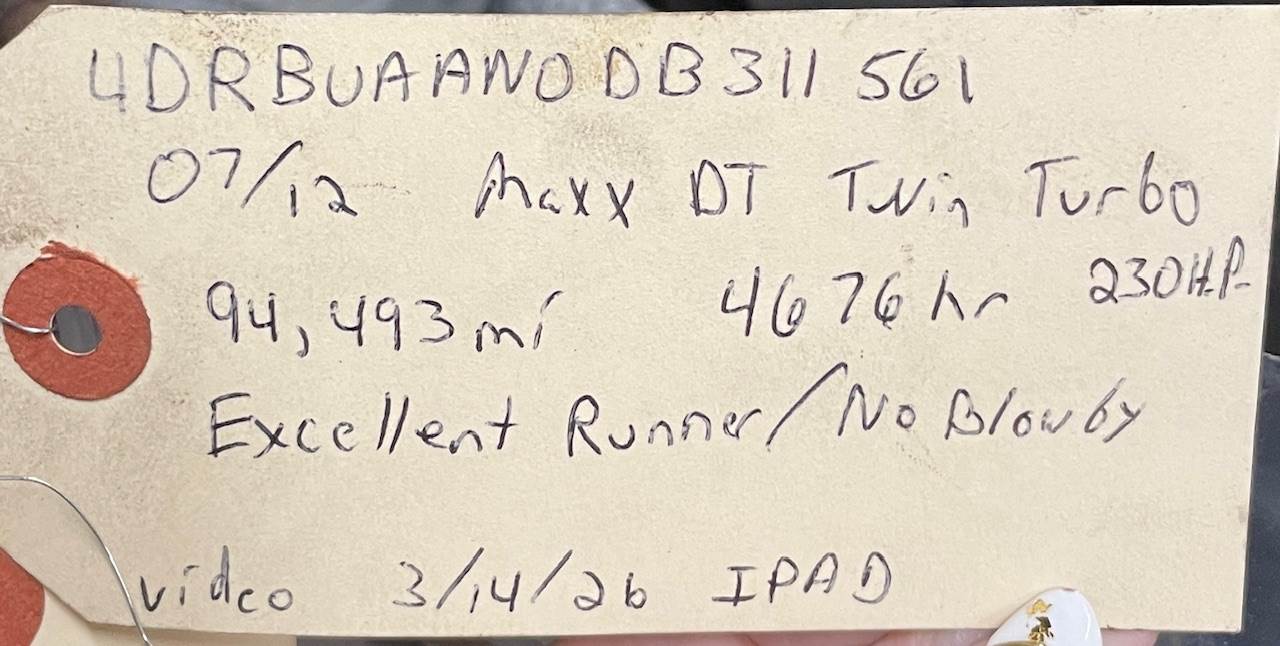 4DRBUAAN0DB311561
07/12 Maxx DT Twin Turbo
94,493mi 4676 hr 230H.P.
Excellent Runner/No Blowby
video 3/14/26 IPAD